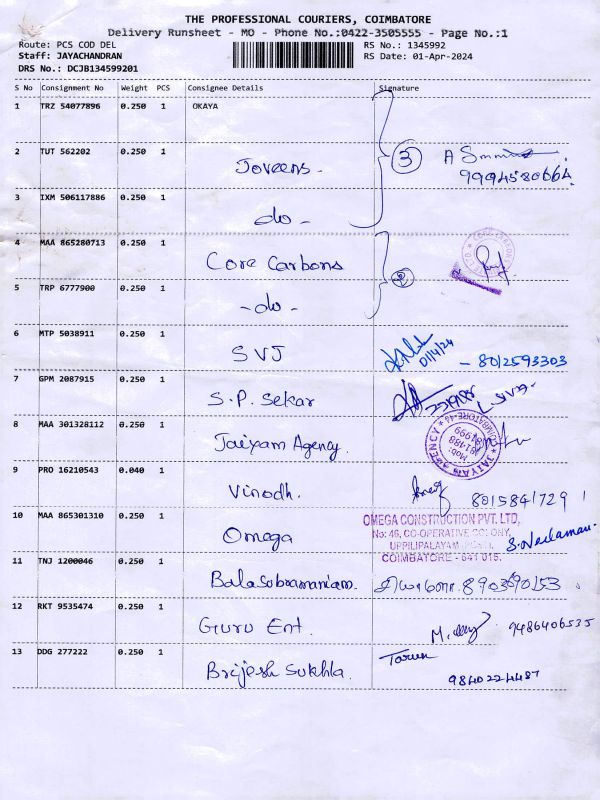 THE PROFESSIONAL COURIERS, COIMBATORE
Delivery Runsheet - MO - Phone No.:0422-3505555 - Page No.:1
Route: PCS COD DEL
RS No.: 1345992
Staff: JAYACHANDRAN
RS Date: 01-Apr-2024
DRS No.: DCJB134599201
S No Consignment No Weight PCS Consignee Details Signature
1 TRZ 54077896 0.250 1 OKAYA
2 TUT 562202 0.250 1 Joveens. 3 A
9994580664
3 IXM 506117886 0.250 1 do -
4 MAA 865280713 0.250 1 Core Carbons 2
5 TRP 6777900 0.250 1 -do-
6 MTP 5038911 0.250 1 SVJ 01/4/24 - 8012593303
7 GPM 2087915 0.250 1 S.P. Sekar
8 MAA 301328112 0.250 1 Jaiyam Agency.
JAIYAM AGENCY ★ COIMBATORE-44 ★
Mob:
9 PRO 16210543 0.040 1 Vinodh. 8015841729
10 MAA 865301310 0.250 1 Omega
OMEGA CONSTRUCTION PVT. LTD,
No: 46, CO-OPERATIVE COLONY,
UPPILIPALAYAM
COIMBATORE - 641 015.
11 TNJ 1200046 0.250 1 Balasubramaniam.
12 RKT 9535474 0.250 1 Guru Ent. 9486406535
13 DDG 277222 0.250 1 Brijesh Sukhla. Tarun
9840224487